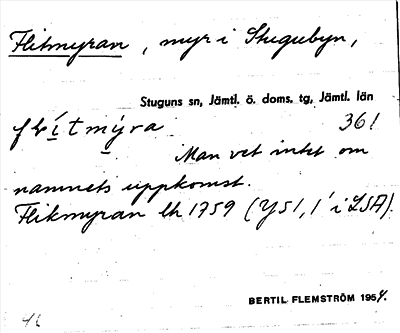 Flitmyran, myr i Stugubyn,
Stuguns sn, Jämtl. ö. doms. tg, Jämtl. län
flítmýra 361
Man vet intet om
namnets uppkomst.
Flikmyran lh 1759 (Y51, 1' i LSA).
BERTIL FLEMSTRÖM 1954.